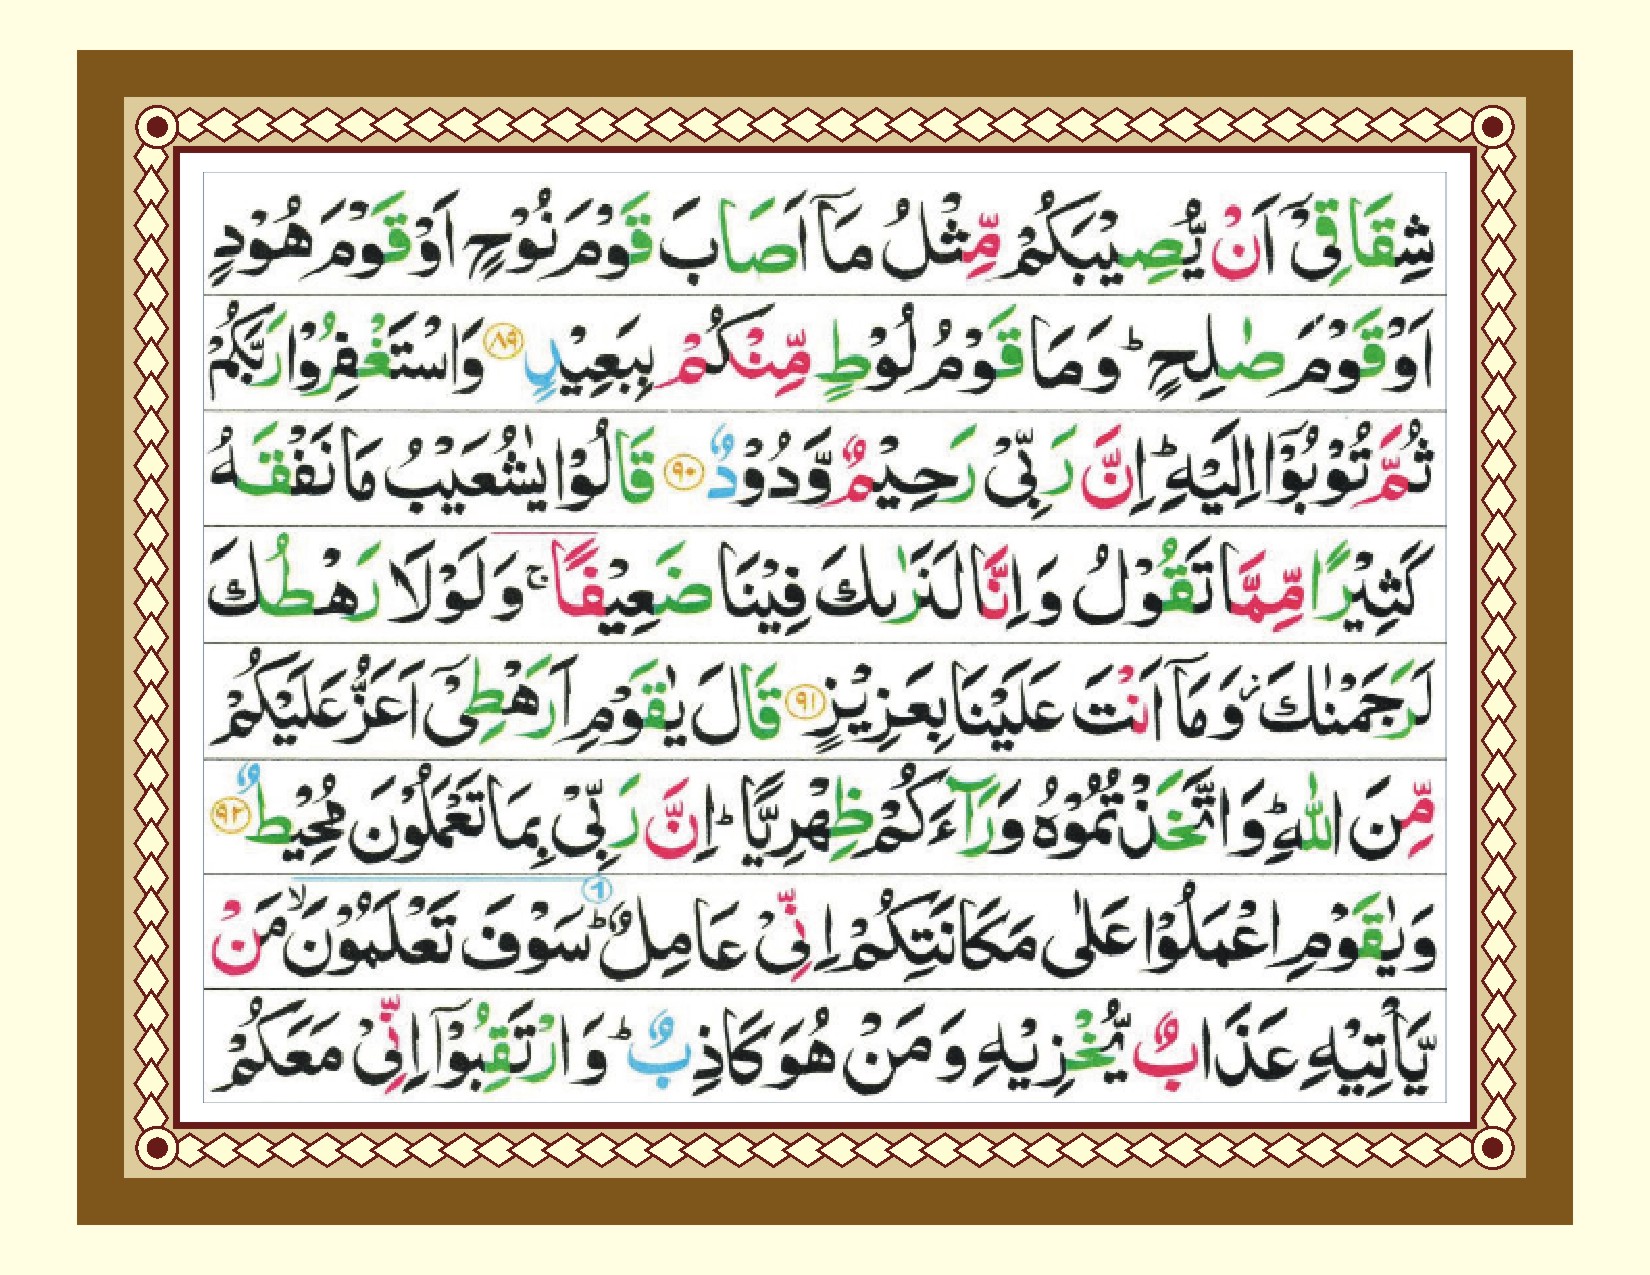 شِقَاقِیْۤ اَنْ یُّصِیْبَكُمْ مِّثْلُ مَاۤ اَصَابَ قَوْمَ نُوْحٍ اَوْ قَوْمَ هُوْدٍ
اَوْ قَوْمَ صٰلِحٍ ؕ وَمَا قَوْمُ لُوْطٍ مِّنْكُمْ بِبَعِیْدٍ ۸۹ وَاسْتَغْفِرُوْا رَبَّكُمْ
ثُمَّ تُوْبُوْۤا اِلَیْهِ ؕ اِنَّ رَبِّیْ رَحِیْمٌ وَّدُوْدٌ ۹۰ قَالُوْا یٰشُعَیْبُ مَا نَفْقَهُ
كَثِیْرًا مِّمَّا تَقُوْلُ وَاِنَّا لَنَرٰىكَ فِیْنَا ضَعِیْفًا ۚ وَلَوْلَا رَهْطُكَ
لَرَجَمْنٰكَ ؗ وَمَاۤ اَنْتَ عَلَیْنَا بِعَزِیْزٍ ۹۱ قَالَ یٰقَوْمِ اَرَهْطِیْۤ اَعَزُّ عَلَیْكُمْ
مِّنَ اللّٰهِ ؕ وَاتَّخَذْتُمُوْهُ وَرَآءَكُمْ ظِهْرِیًّا ؕ اِنَّ رَبِّیْ بِمَا تَعْمَلُوْنَ مُحِیْطٌ ۹۲
وَیٰقَوْمِ اعْمَلُوْا عَلٰی مَكَانَتِكُمْ اِنِّیْ عَامِلٌ ؕ سَوْفَ تَعْلَمُوْنَ ۙ مَنْ
یَّاْتِیْهِ عَذَابٌ یُّخْزِیْهِ وَمَنْ هُوَ كَاذِبٌ ؕ وَارْتَقِبُوْۤا اِنِّیْ مَعَكُمْ